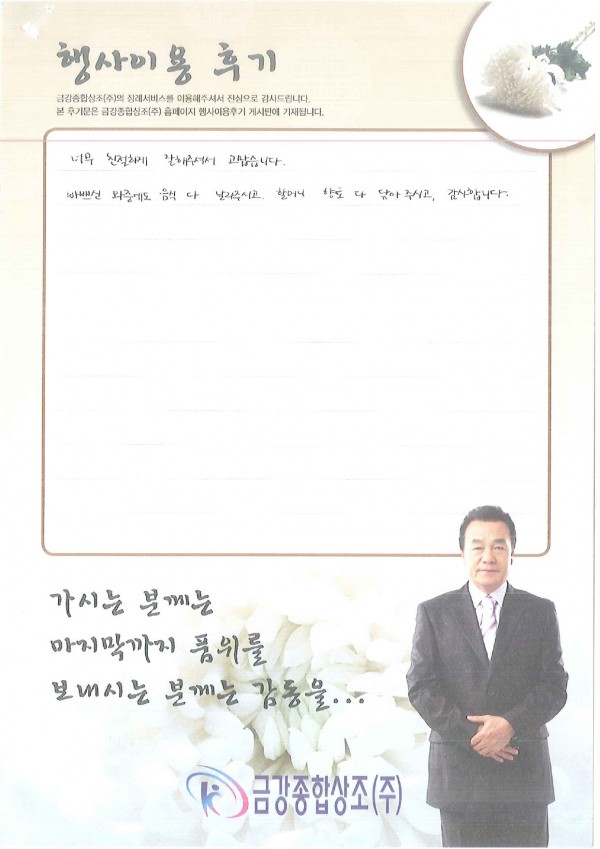 행사이용 후기
금강종합상조(주)의 장례서비스를 이용해주셔서 진심으로 감사드립니다.
본 후기문은 금강종합상조(주) 홈페이지 행사이용후기 게시판에 기재됩니다.
너무 친절하게 잘해주셔서 고맙습니다.
바쁘신 와중에도 음식 다 날라주시고. 할머니 다 닦아 주시고, 감사합니다.
가시는 분께는
마지막까지 품위를
보내시는 분께는 감동을...
금강종합상조(주)